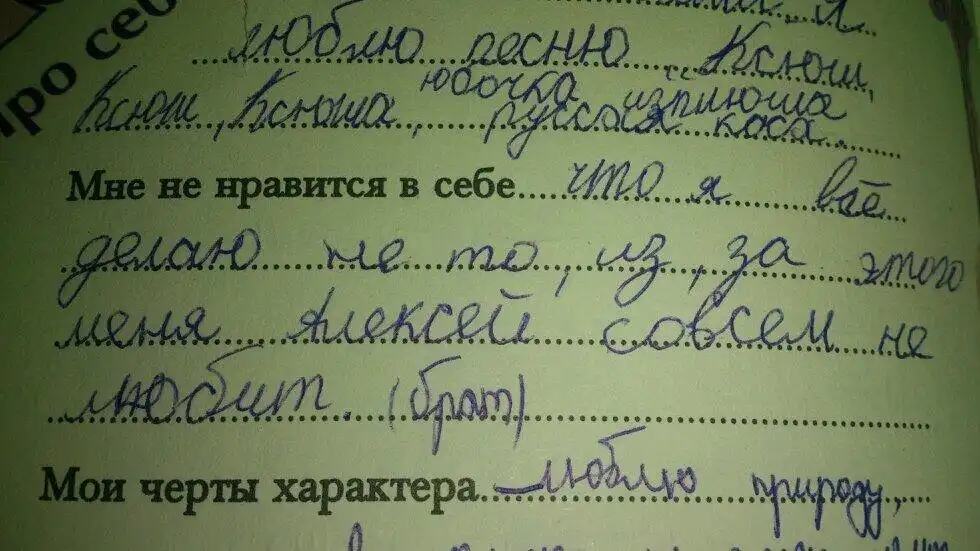 я
Про себ
люблю песню Ксюш,
Ксюш, Ксюша, юбочка из плюша
русская коса.
Мне не нравится в себе что я всё
делаю не то, из, за этого
меня Алексей совсем не
любит. (брат)
Мои черты характера люблю природу,